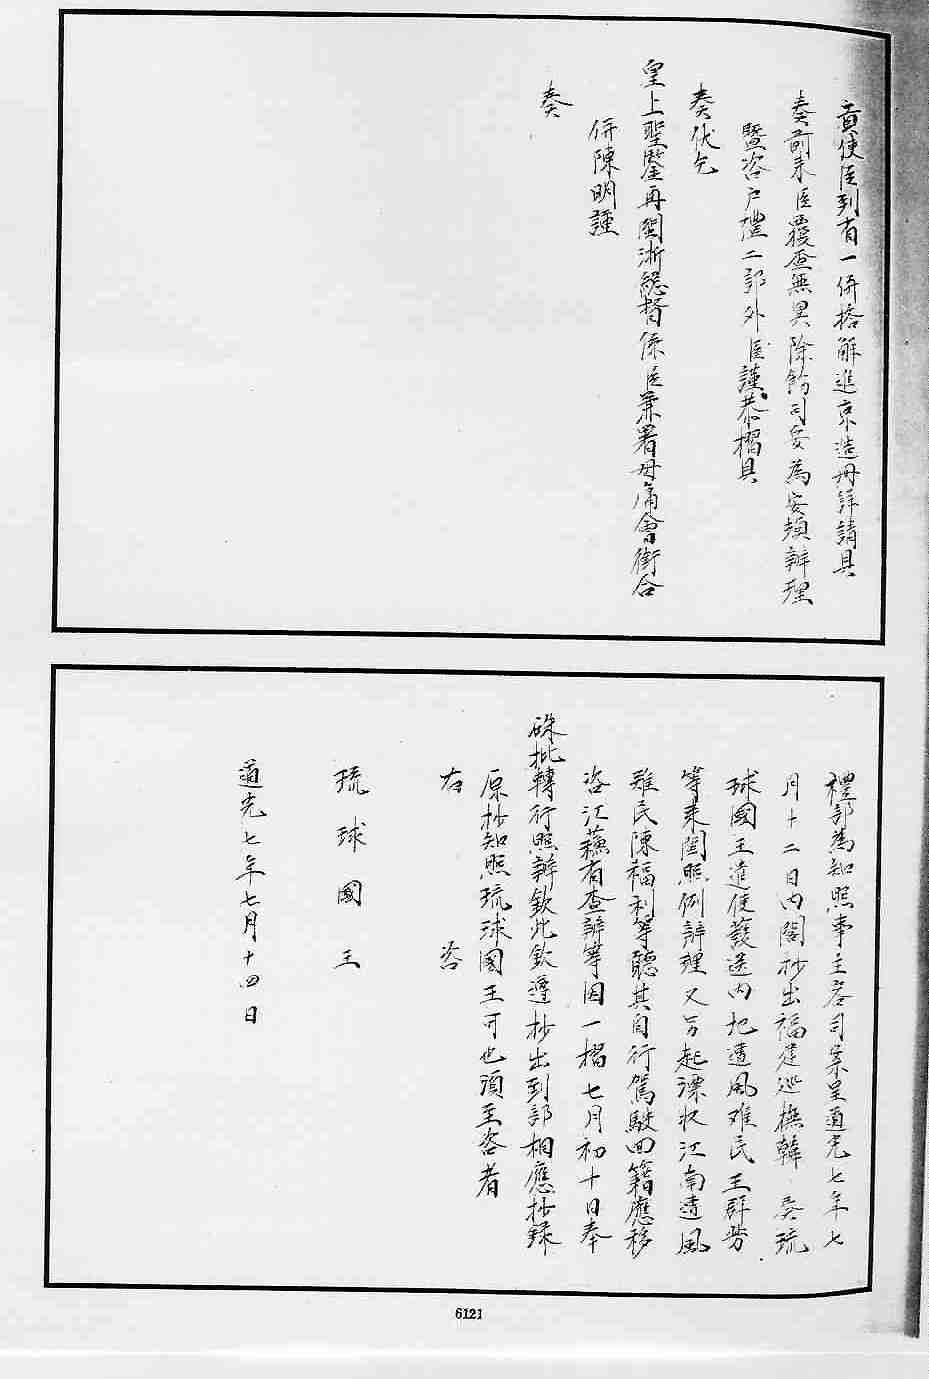 貢使臣到省一併搭解進京造冊詳請具
奏前來臣覆查無異除飭司妥為安頓辦理
暨咨戶禮二部外臣謹恭摺具
奏伏乞
皇上聖鑒再閩浙總督係臣兼署毋庸會銜合
併陳明謹
奏
禮部為知照事主客司案呈道光七年七
月十二日內閣抄出福建巡撫韓 奏琉
球國王遣使護送內地遭風难民王群芳
等來閩照例辦理又另起漂收江南遭風
難民陳福利等聽其自行駕駛回籍應移
咨江蘓省查辦等因一摺七月初十日奉
硃批轉行照辦欽此欽遵抄出到部相應抄錄
原抄知照琉球國王可也須至咨者
右 咨
琉球國王
道光七年七月十四日
6121